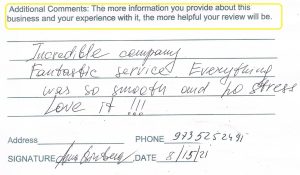 Additional Comments: The more information you provide about this
business and your experience with it, the more helpful your review will be.
Incredible company
Fantastic service Everything
was so smooth and no stress
Love it !!!
Address PHONE 9735252491
SIGNATURE DATE 8/15/21